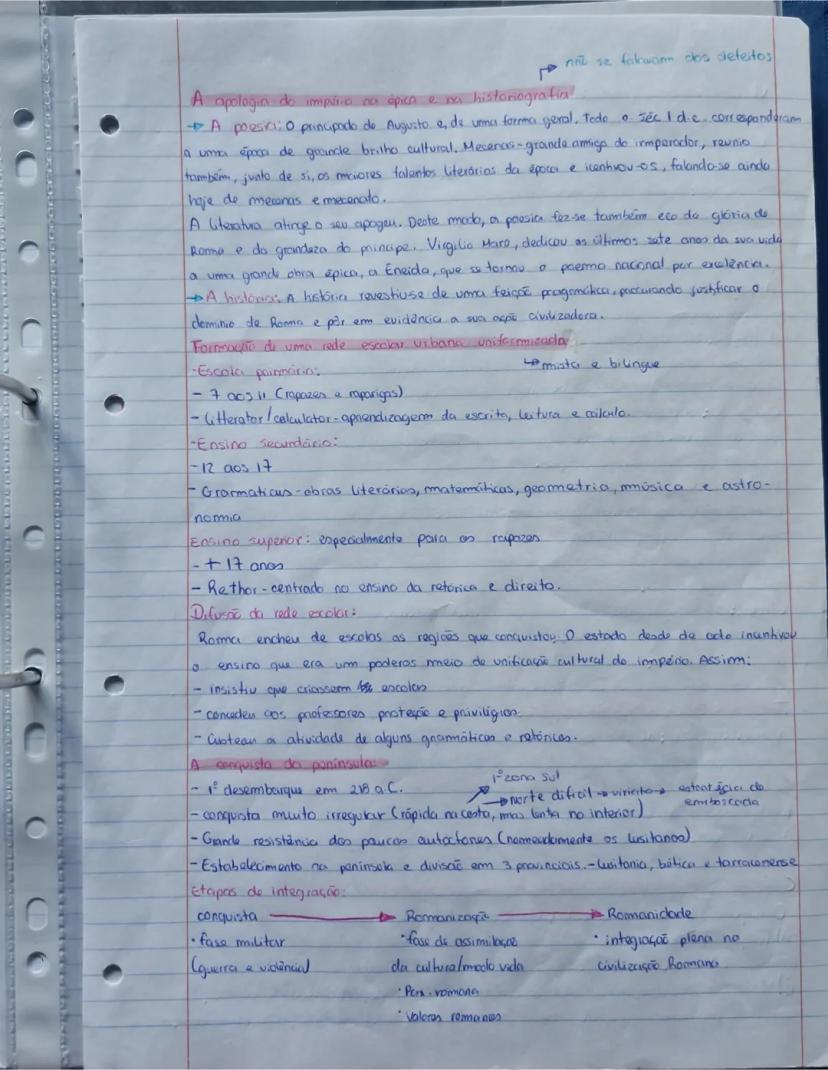 não se falavam dos defeitos
A apologia do império na épica e na historiografia
→ A poesia: O principado de Augusto e, de uma forma geral, todo o séc I d.c. corresponderam
a uma época de grande brilho cultural. Mecenas-grande amigo do imperador, reuniu
também, junto de si, os maiores talentos literários da época e icentivou-os, falando-se ainda
hoje de mecenas e mecenato.
A literatura atinge o seu apogeu. Deste modo, a poesia fez-se também eco da glória de
Roma e da grandeza do príncipe. Virgílio Maro, dedicou os últimos sete anos da sua vida
a uma grande obra épica, a Eneida, que se tornou o poema nacional por exelência.
→ A história: A história revestiu-se de uma feição pragmática, procurando justificar o
domínio de Roma e pôr em evidência a sua ação civilizadora.
Formação de uma rede escolar urbana uniformizada
↳ mista e bilingue
-Escola primária:
- 7 aos 11 (rapazes e raparigas)
- Litterator/calculator-aprendizagem da escrita, leitura e cálculo.
-Ensino secundário:
-12 aos 17
- Grammaticus-obras literárias, matemáticas, geometria, música e astro-
nomia
Ensino superior: especialmente para os rapazes
- + 17 anos
- Rethor-centrado no ensino da retórica e direito.
Difusão da rede escolar:
Roma encheu de escolas as regiões que conquistou. O estado desde de cedo incentivou
o ensino que era um poderos meio de unificação cultural do império. Assim:
- insistiu que criassem escolas
- concedeu aos professores proteção e privilígios.
- Custeou a atividade de alguns gramáticos e retóricos.
A conquista da península:
- 1º desembarque em 218 a.C.
1º zona sul
→ norte dificil → viriato → estratégia de
emboscada
- conquista muito irregular (rápida na costa, mas lenta no interior)
- Grande resistência dos poucos autóctones (nomeadamente os lusitanos)
- Estabelecimento na península e divisão em 3 provinciais.-Lusitania, bética e tarraconense
Etapas de integração:
conquista → Romanização → Romanidade
· fase militar
(guerra e violência)
· fase de assimilação
da cultura/modo vida
· Pax-romana
· Valores romanos
· integração plena na
civilização Romana